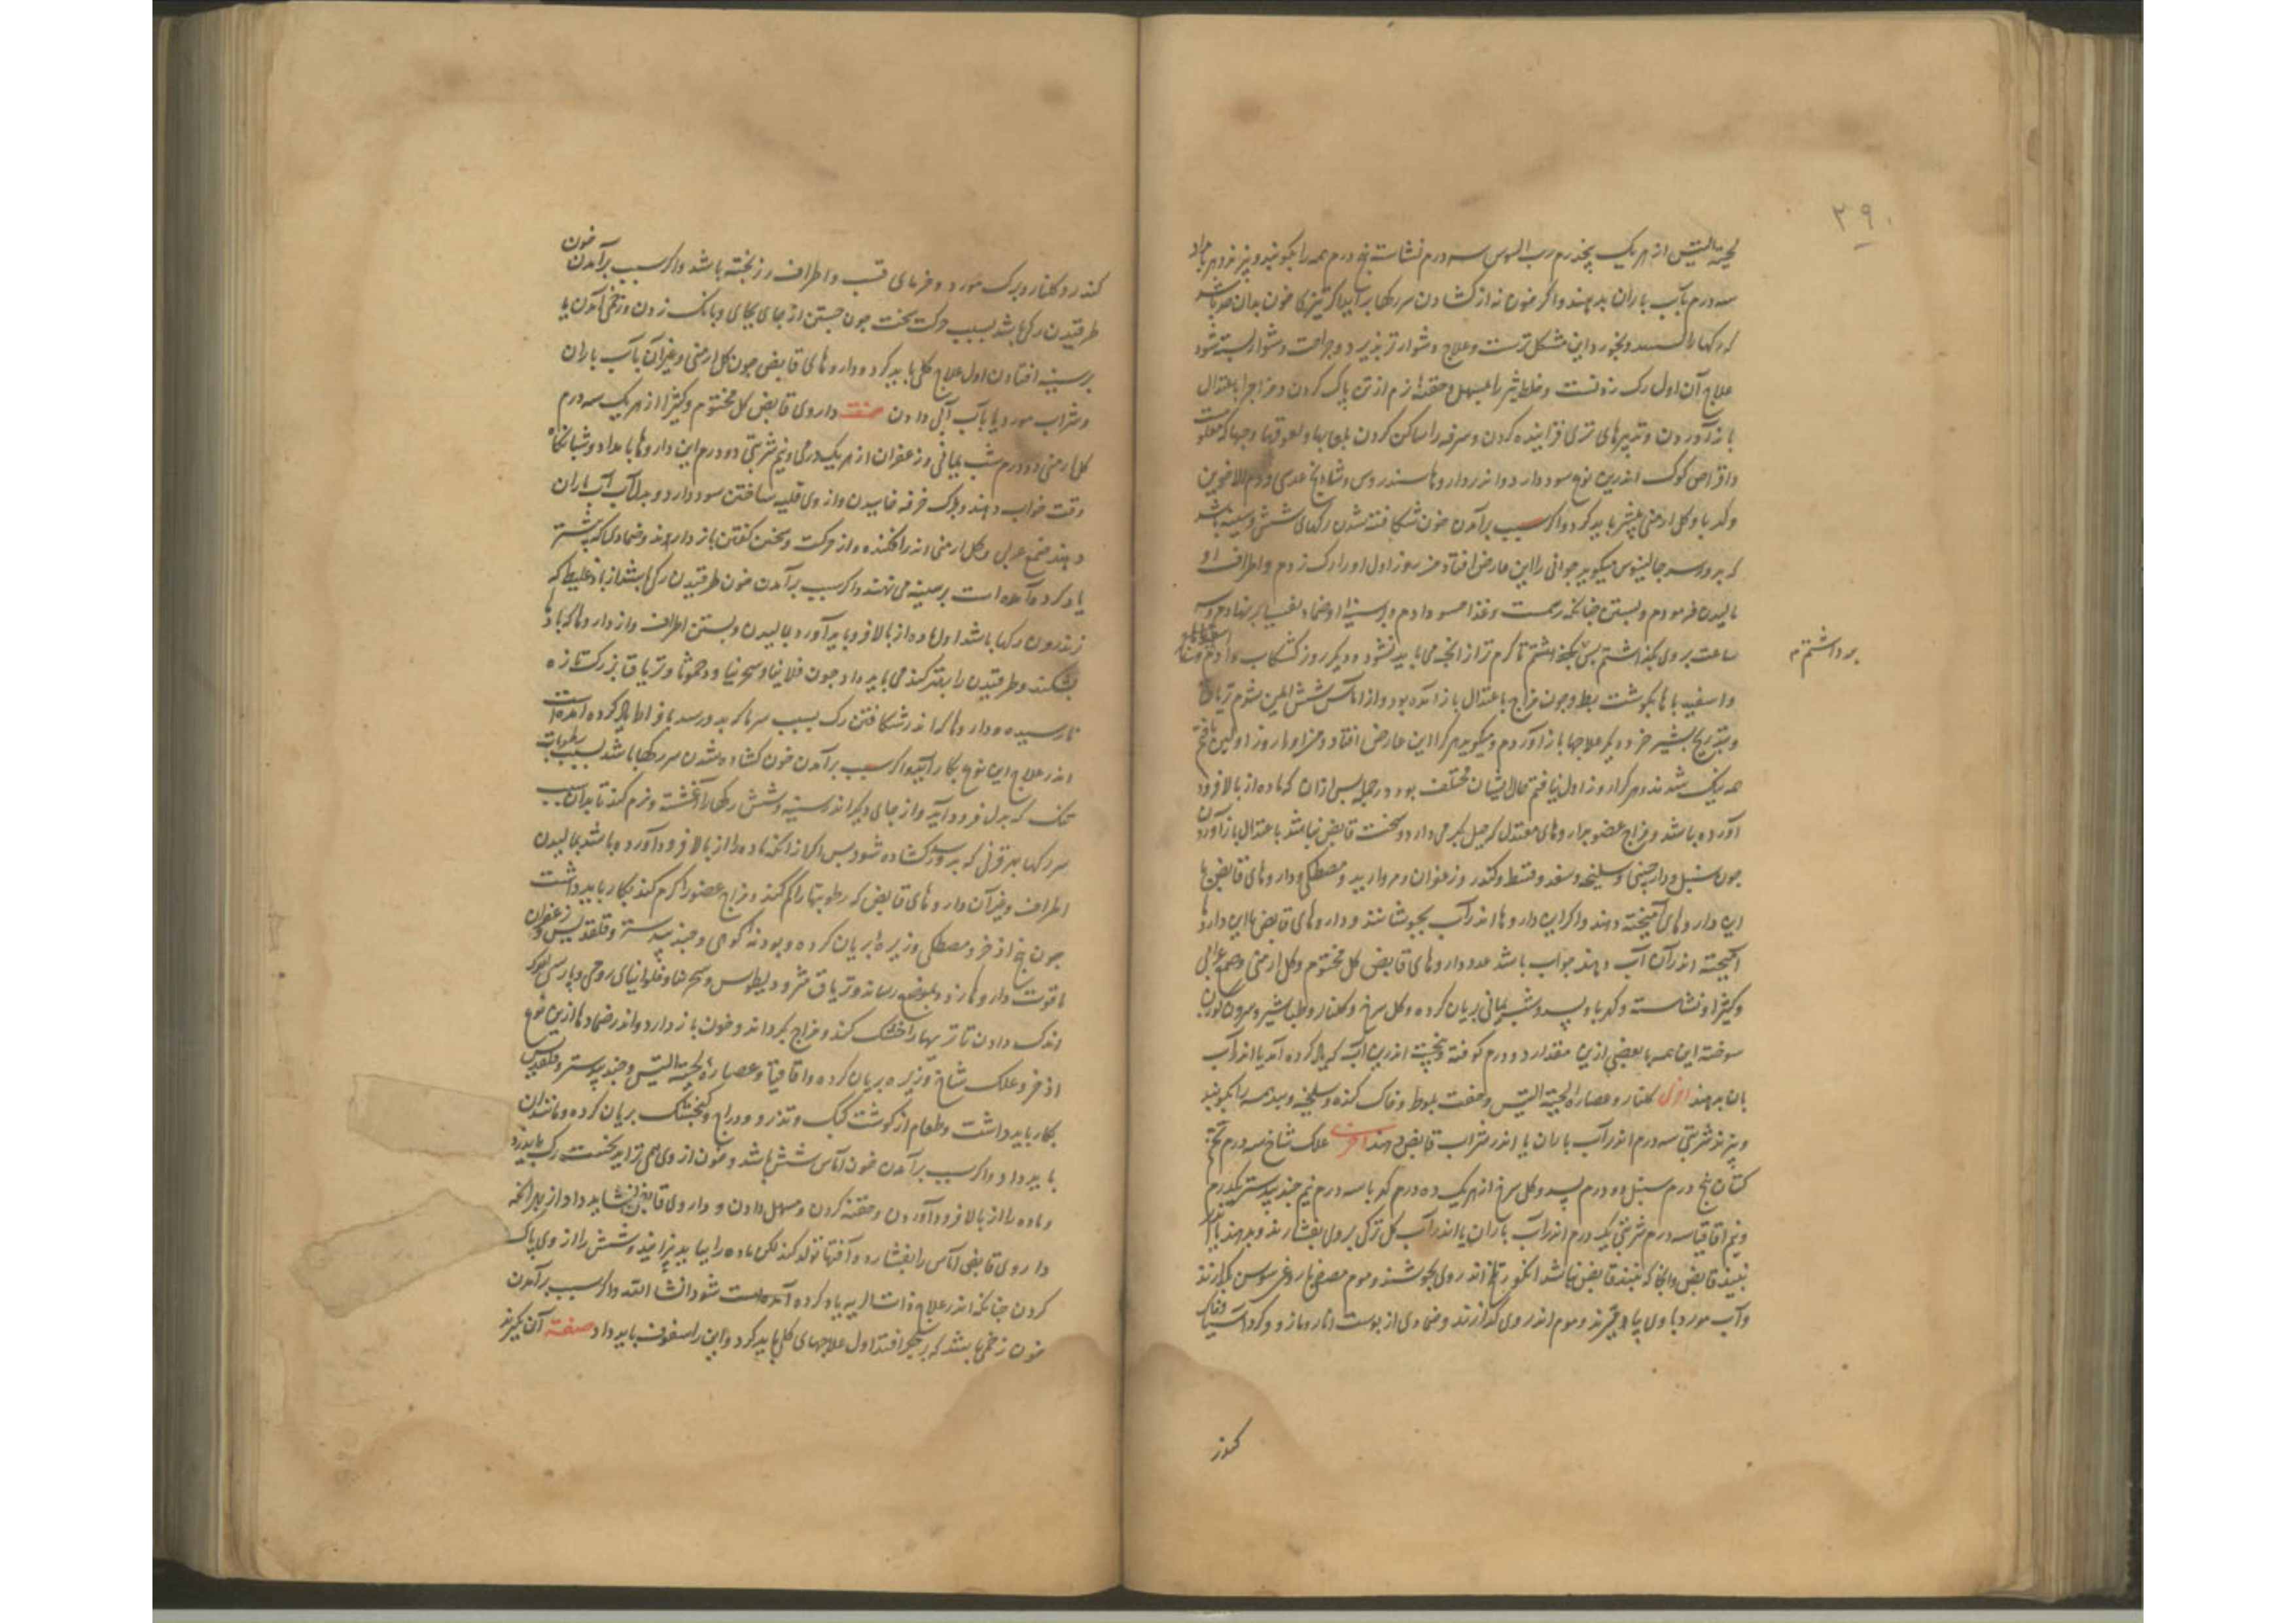 ٣٩٠
لحیة التیس از هر یک پنجدرم رب السوس سه درم نشاسته پنج درم همه را بکوبند و ببزند و هر بامداد
سه درم بآب باران بدهند و اگر خون نه از کشادن سر رکها برآید اگر تیزی خون بدان حد باشد
که رکها را و بخورد این مشکل ترست و علاج دشوارتر پذیرد و جراحت دشوار بسته شود
علاج آن اول رک زدنست و خلط تیز را بمسهل و حقنه نرم از تن پاک کردن و مزاج را باعتدال
باز آوردن و تدبیرهای تری فزاینده کردن و سرفه را ساکن کردن بلعابها و لعوقها و حبها که معلومست
و اقراص کوکب اندرین نوع سود دارد و اندر داروها سندروس و شادنج عدسی و دم الاخوین
و کهربا و کل ارمنی بیشتر باید کرد و اگر سبب برآمدن خون شکافته شدن رکهای شش و سینه باشد
که بدو رسد جالینوس میکوید جوانی را این عارض افتاد من روز اول او را رک زدم و اطراف او
مالیدن فرمودم و بستن چنانکه رسمست و غذا حسو دادم و بر سینه او ضماد ثفسیا بر نهادم و سه
ساعت بروی بکذاشتم پس بکذاشتم تا کرم تر از آنچه می باید نشود و دیکر روز کشکاب دادم
برداشتم
و اسفیدباها بکوشت بط و چون مزاج باعتدال باز آمده بود و از آماس شش ایمن شدم تریاق
و بتدریج بشیر خر و دیکر علاجها باز آوردم و میکوید هر کرا این عارض افتاد و من او را روز اولین یافتم
همه نیک شدند و هر کرا روز اول نیافتم حال ایشان مختلف بود و در جمله پس ازان که ماده از بالا فرود
آورده باشد و مزاج عضو بداروهای معتدل که میل بکرمی دارد و سخت قابض نباشد باعتدال باز آوردن
چون سنبل و دارچینی و سلیخه و سعد و قسط و کندر و زعفران و مروارید و مصطکی و داروهای قابض با
این داروهای آمیخته دهند و اکر این داروها اندر آب بجوشانند و داروهای قابض با این داروها
آمیخته اندر آن آب دهند صواب باشد عدد داروهای قابض کل مختوم و کل ارمنی و صمغ عربی
و کثیرا و نشاسته و کهربا و بسد و شب یمانی بریان کرده و کل سرخ و کلنار و طباشیر و سرون کوزن
سوخته این همه یا بعضی ازین مقدار دو درم کوفته و بیخته اندرین آب که یاد کرده آمد یا اندر آب
باران بدهند اخری کلنار و عصاره لحیة التیس و جفت بلوط و خاک کنده و سلیخه و بسد همه را بکوبند
و ببزند شربتی سه درم اندر آب باران یا اندر شراب قابض دهند اخری علک شاخ سه درم تخم
کتان پنج درم سنبل دو درم بسد و کل سرخ از هر یک ده درم کهربا سه درم نیم جند بیدستر یکدرم
و نیم اقاقیا سه درم شربتی یک درم اندر آب باران یا اندر آب کل ترکی بروی بفشارند و بدهند یا اندر
نبیذ قابض و انجا که نبیذ قابض نباشد انکور تازه اندر وی بجوشند و موم مصفی با روغن سوسن بکدازند
و آب مورد با وی بیامیزند و موم اندر وی کدازند و ضمادی از پوست انار و مازو و کرد آسیا و خاک
کندر
کندر و کلنار و برک مورد و خرمای قسب و اطراف رز پخته باشد و اکر سبب برآمدن خون
طرقیدن رکی باشد بسبب حرکت سخت چون جستن از جای بجای و بانک زدن و زخمی آمدن یا
بر سینه افتادن اول علاج کلی باید کرد و داروهای قابض چون کل ارمنی و غیر آن بآب باران
و شراب مورد یا بآب آبی دادن صفت داروی قابض کل مختوم و کثیرا از هر یک سه درم
کل ارمنی دو درم شب یمانی و زعفران از هر یک درمی و نیم شربتی دو درم این داروها بامداد و شبانکاه
وقت خواب دهند و برک خرفه خاییدن و از وی قلیه ساختن سود دارد و بدل آب آب باران
دهند صمغ عربی و کل ارمنی اندر افکنده و از حرکت و سخن کفتن باز دارند و ضمادی که پیشتر
یاد کرده آمده است بر سینه می نهند و اکر سبب برآمدن خون طرقیدن رکی باشد از باد غلیظ که
اندرون رکها باشد اول ماده از بالا فرو باید آورد بمالیدن و بستن اطراف و از داروها که بادها
بشکند و طرقیدن را بدتر نکند می باید داد چون فلانیا و سجرنیا و دحمرثا و تریاق بزرک تازه
نارسیده و داروها که اندر شکافتن رک بسبب سرما که بدو رسد بافراط یاد کرده آمده است
اندر علاج این نوع بکار آید و اکر سبب برآمدن خون کشاده شدن سر رکها باشد بسبب رطوبات
تنک که بدل فرود آید و از جای دیکر اندر سینه و شش رکها را آغشته و نرم کند تا بدان سبب
سر رکها بهر قوتی که بدو رسد کشاده شود پس ازانکه ماده را از بالا فرود آورده باشد بمالیدن
اطراف و غیر آن داروهای قابض که رطوبتها را کم کند و مزاج عضو را کرم کند بکار باید داشت
چون بیخ اذخر و مصطکی و زیره بریان کرده و پودنه کوهی و جند بیدستر و قلقدیس و زعفران
تا قوت داروها زود بموضع رساند و تریاق مثرودیطوس و سجرنیا و فلونیای رومی و پارسی
اندک دادن تا تریها را خشک کند و مزاج بکرداند و خون باز دارد و اندر ضمادها ازین نوع
اذخر و علک شاخ و زیره بریان کرده و اقاقیا و عصاره لحیة التیس و جند بیدستر و قلقدیس
بکار باید داشت و طعام از کوشت کبک و تذرو و دراج و کنجشک بریان کرده و مانند آن
باید داد و اکر سبب برآمدن خون آماس شش باشد و خون از وی همی تراید نخست رک باید زد
و ماده را از بالا فرود آوردن و حقنه کردن و مسهل دادن و داروی قابض نشاید داد از بهر آنکه
داروی قابض آماس را بفشارد و آفتها تولد کند لکن ماده را بباید پزانید و شش را از وی پاک
کردن چنانکه اندر علاج ذات الریه یاد کرده آمده است شود انشا الله و اکر سبب برآمدن
خون زخمی باشد که بر جکر افتد اول علاجهای کلی باید کرد و این سفوف باید داد صفت آن بکیرند